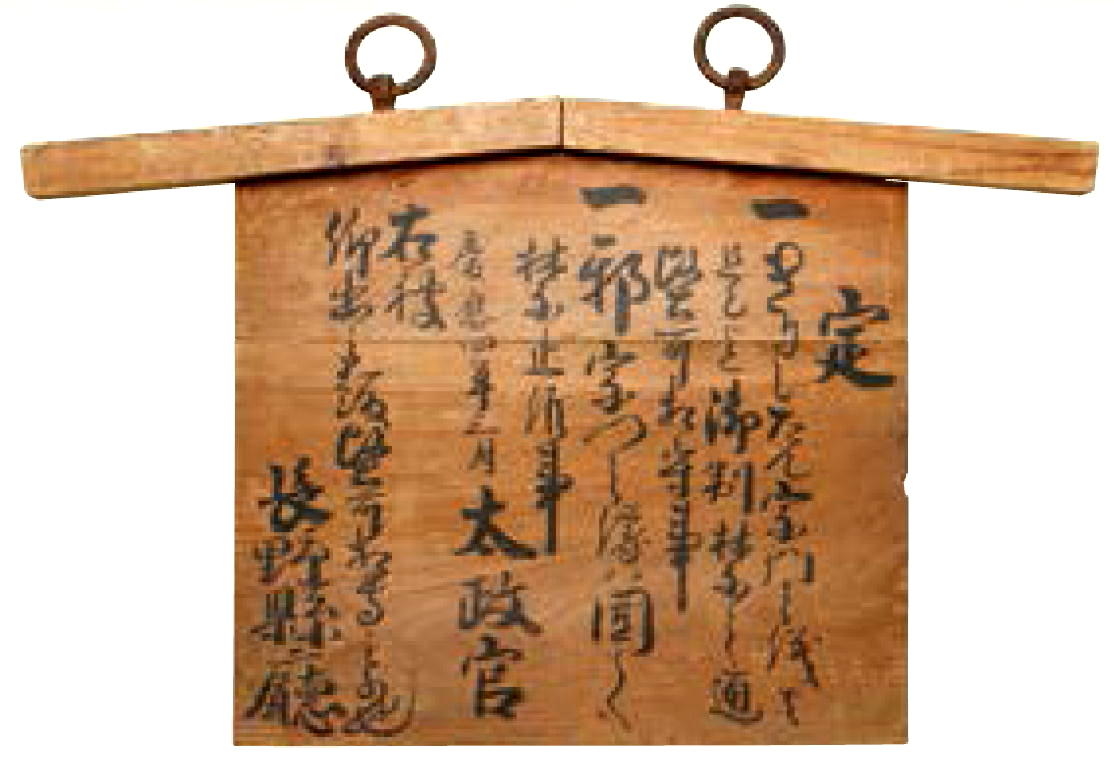 定
一 きりしたん宗門之儀は
是迄之御制禁之通
堅可相守事
一 邪宗門之儀ハ固く
禁止候事
慶應四年三月 太政官
右被
仰出候趣堅可相守もの也
長野縣廳